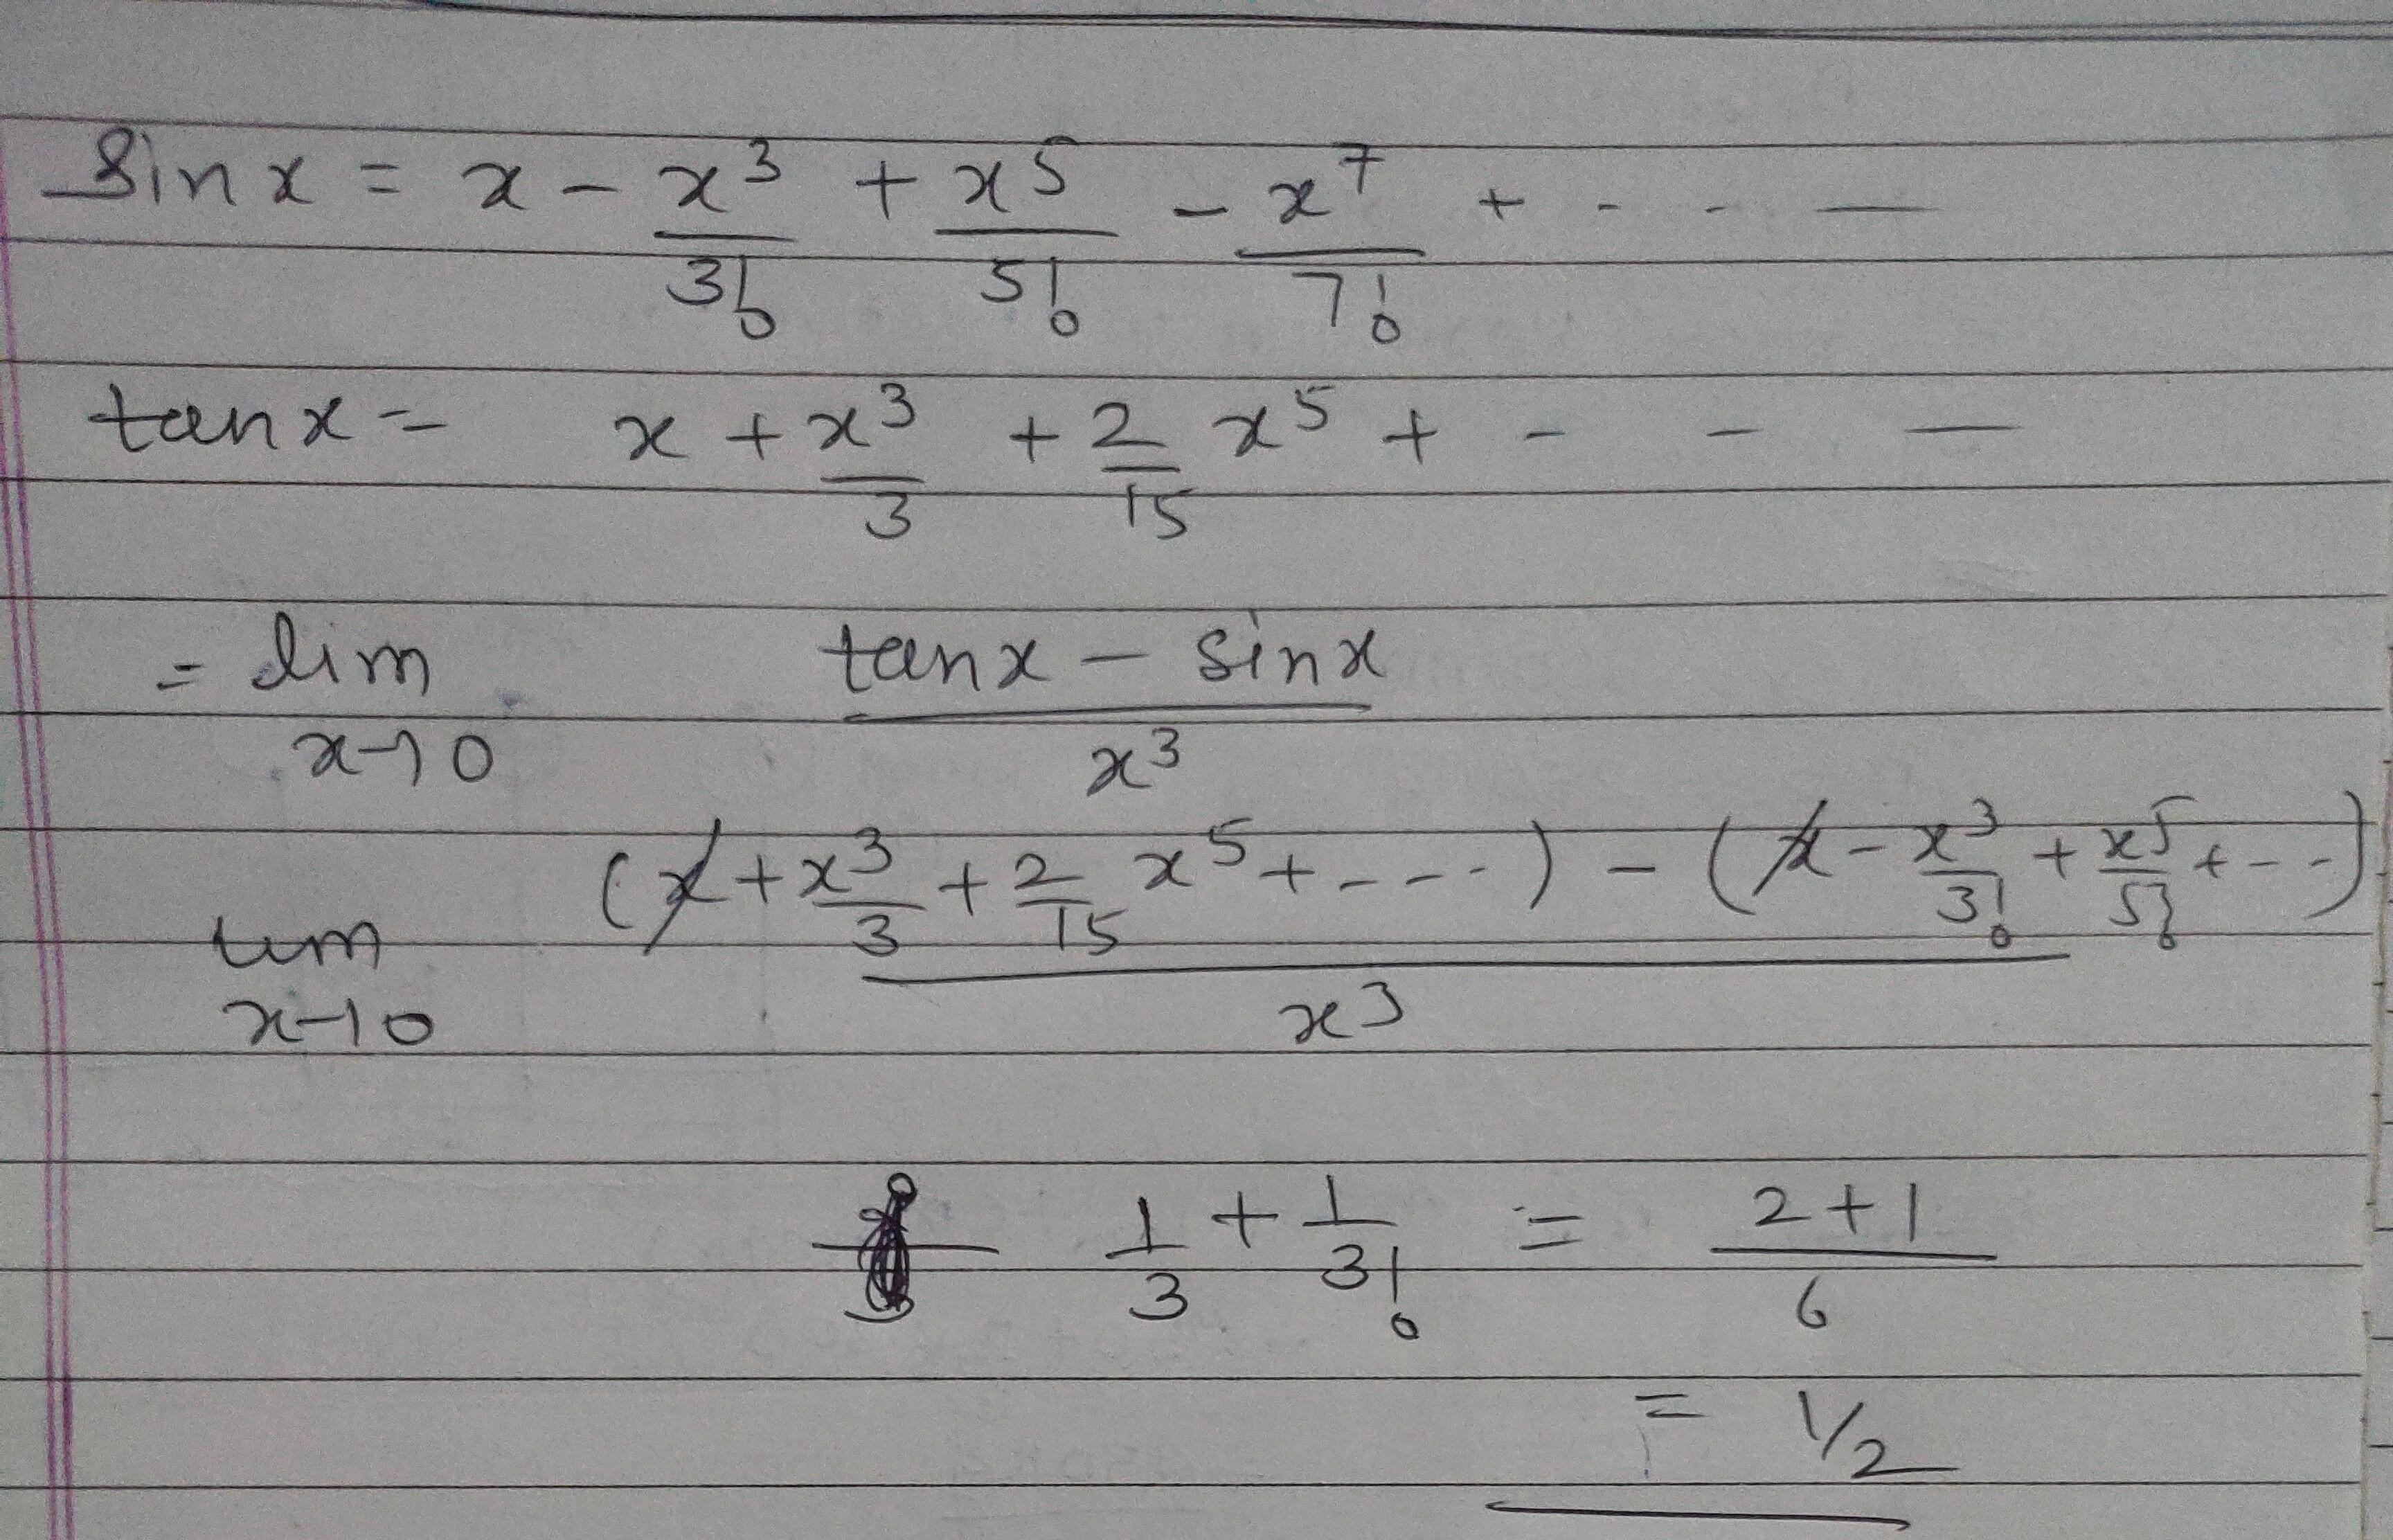 sin x = x - x³/3! + x⁵/5! - x⁷/7! + - - —
tan x = x + x³/3 + 2/15 x⁵ + - - —
= lim x→0 (tan x - sin x)/x³
lim x→0 ((x + x³/3 + 2/15 x⁵ + - - - -) - (x - x³/3! + x⁵/5! + - - -))/x³
1/3 + 1/3! = (2+1)/6
= 1/2